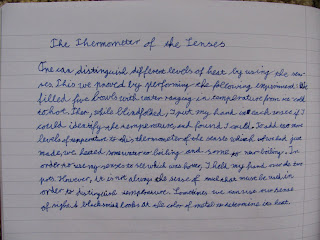 The Thermometer of the Senses
One can distinguish different levels of heat by using the sen-
ses. This we proved by performing the following experiment: We
filled five bowls with water ranging in temperature from ice cold
to hot. Then, while blindfolded, I put my hand in each to see if I
could identify the temperature, and found I could. To add two more
levels of temperature to this thermometer of the senses which we had just
made, we heated some water to boiling and some to near boiling. In
order to use my senses to see which was hotter, I held my hand over the two
pots. However, it is not always the sense of touch that must be used in
order to distinguish temperature. Sometimes we can use our sense
of sight. A blacksmith looks at the color of metal to determine its heat.